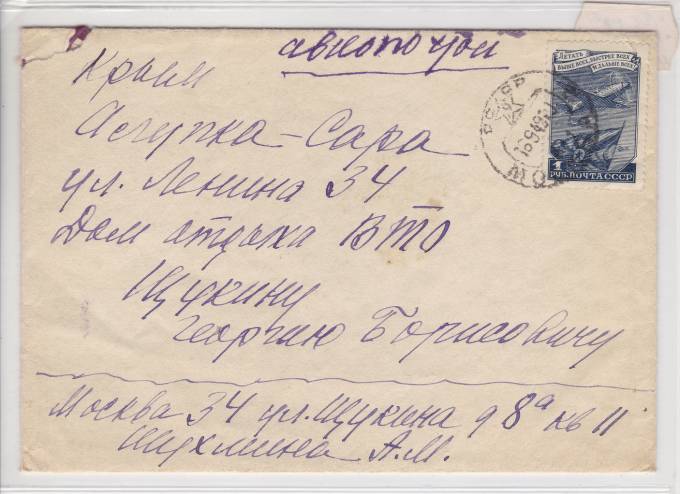 авиопочтой
ЛЕТАТЬ
ВЫШЕ ВСЕХ, БЫСТРЕЕ ВСЕХ
И ДАЛЬШЕ ВСЕХ!
1
РУБ. ПОЧТА СССР
Крым
Алупка-Сара
ул. Ленина 34
Дом отдыха ВТО
Щукину
Георгию Борисовичу
Москва 34 ул. Щукина д 8а кв 11
Шухмина А.М.